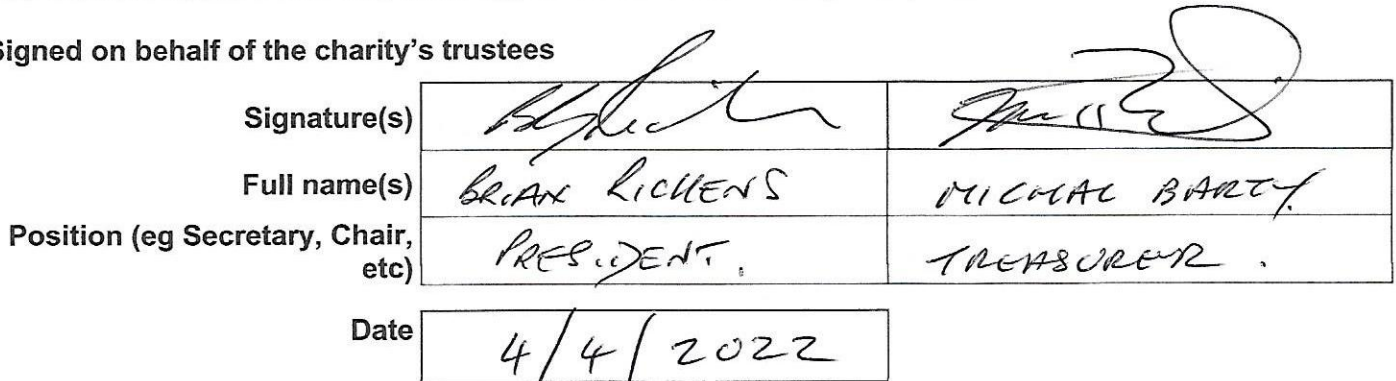 Signed on behalf of the charity's trustees
Signature(s)
Full name(s) BRIAN RICKENS MICHAL BARTY.
Position (eg Secretary, Chair, PRESIDENT. TREASURER.
etc)
Date 4/4/2022